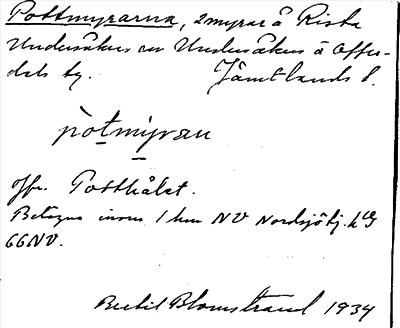 Pottmyrarna, 2 myrar å Rista
Undersåkers sn Undersåkers å Offer-
dals tg. Jämtlands l.
pòtmýran
Jfr. Potthålet.
Belägna inom 1 km NV Nordsjötj. kbl
66NV.
Bertil Blomstrand 1934